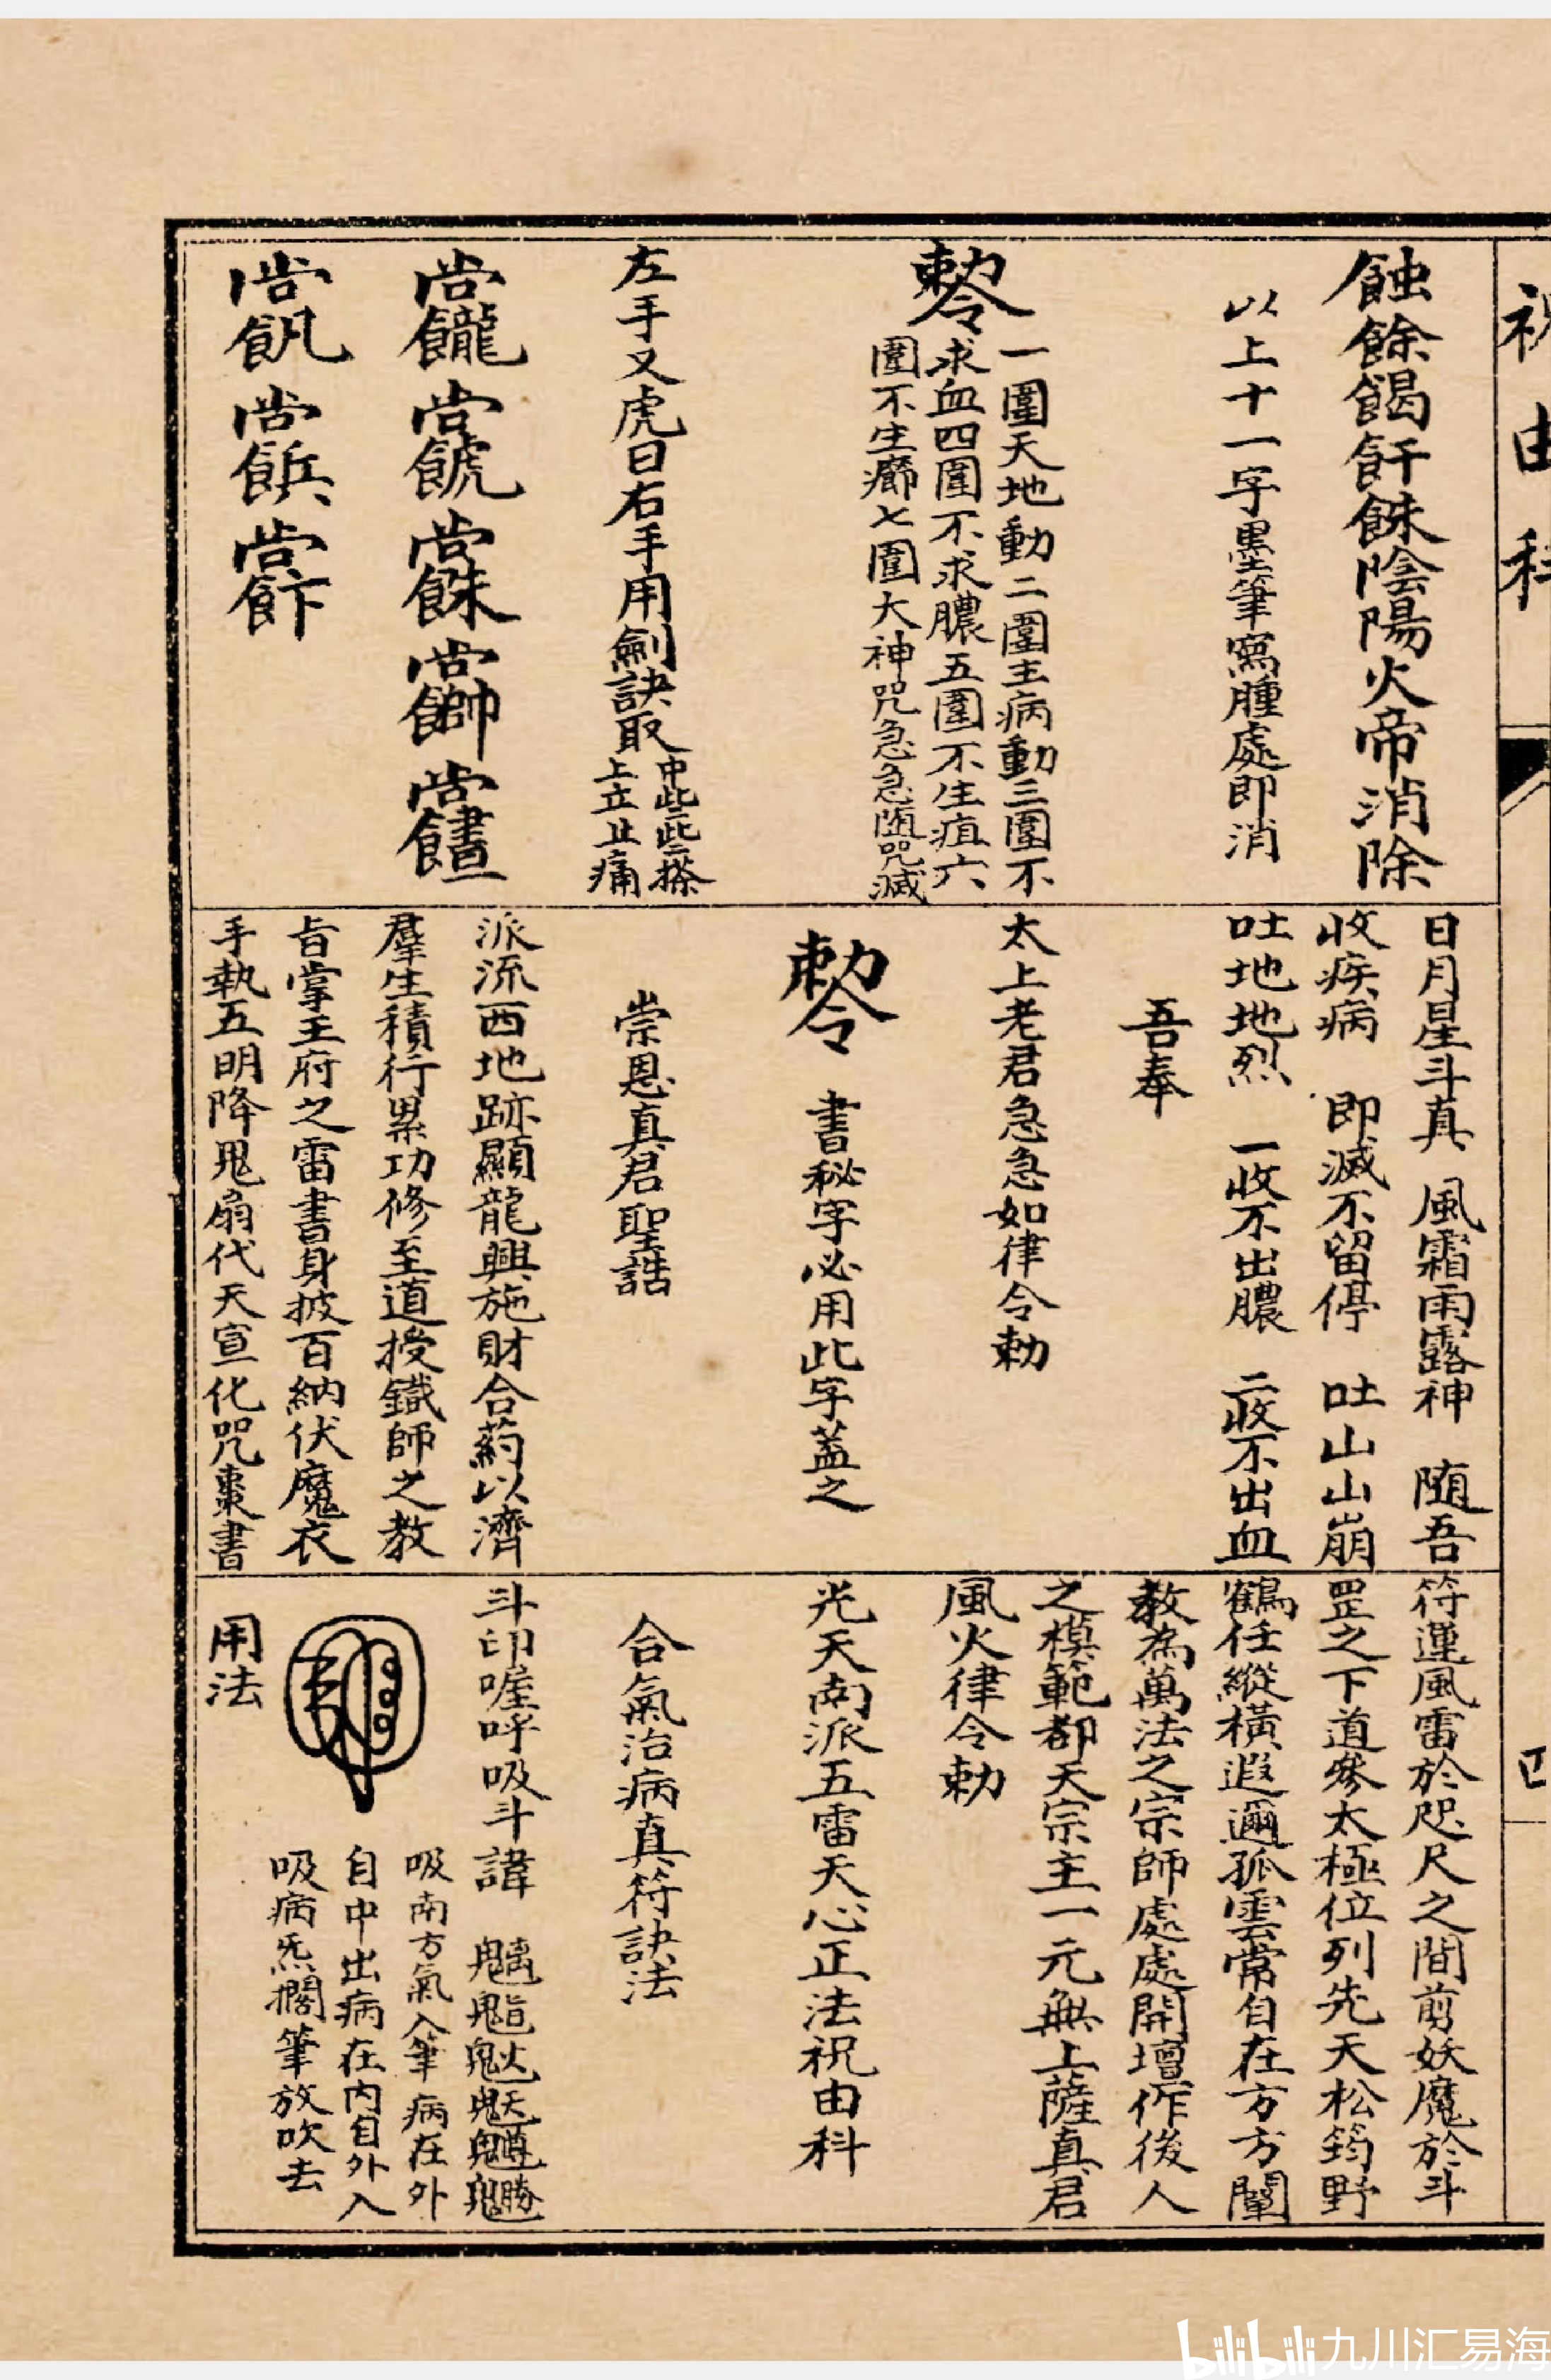 祝由科
四
蝕餘餲飦餗陰陽火帝消除
以上十一字墨筆寫腫處即消
勅令
一圍天地動二圍主病動三圍不
求血四圍不求膿五圍不生疽六
圍不生癤七圍大神咒急急隨咒滅
左手又虎曰右手用劍訣取
中此些搽
上立止痛
日月星斗真 風霜雨露神 随吾
收疾病 即滅不留停 吐山山崩
吐地地烈 一收不出膿 二收不出血
吾奉
太上老君急急如律令勅
勅令 書秘字必用此字蓋之
崇恩真君聖誥
派流西地跡顯龍興施財合葯以濟
羣生積行累功修至道授鐵師之教
旨掌王府之雷書身披百納伏魔衣
手執五明降鬼扇代天宣化咒棗書
符運風雷於咫尺之間剪妖魔於斗
罡之下道參太極位列先天松筠野
鶴任縱橫遐邇孤雲常自在方方闡
教為萬法之宗師處處開壇作後人
之模範都天宗主一元無上薩真君
風火律令勅
光天南派五雷天心正法祝由科
合氣治病真符訣法
斗印喔呼吸斗諱
吸南方氣入筆病在外
自中出病在內自外入
吸病炁擱筆放吹去
用法
bilibili 九川汇易海